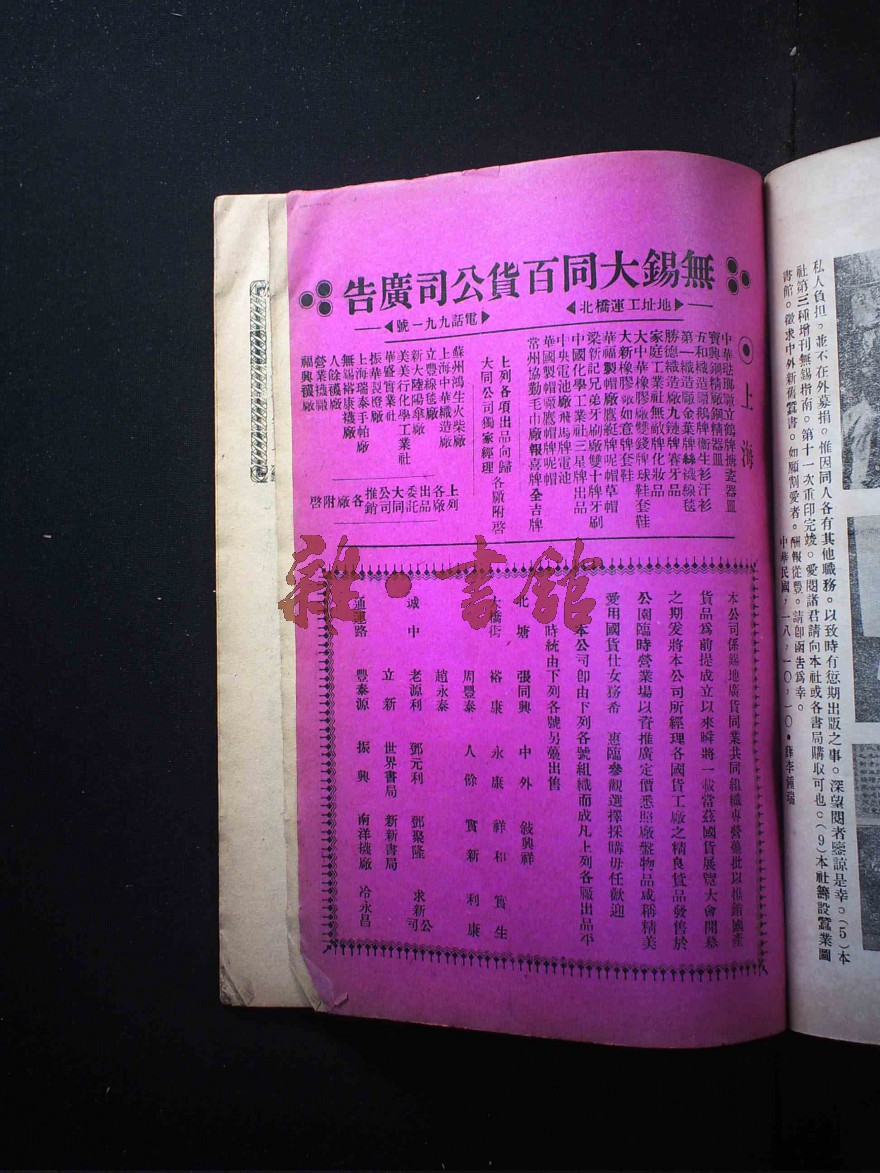 無錫大同百貨公司廣告
地址工運橋北
電話九九一號
上海
中華琺瑯廠立鶴牌搪瓷器皿
寶興鋼精廠鋼精器皿
五和織造廠鵝牌衛生衫汗衫
第一織造廠金葉牌絲襪線毯
勝德織造廠九鏈牌賽牙品
家庭工業社無敵牌化妝品
大中華橡膠廠雙錢牌球鞋套鞋
大新橡膠廠如意牌套鞋
華福製帽廠鷹艇牌呢帽草帽
梁新記兄弟牙刷廠雙十牌牙刷
中國化學工業社三星牌出品
中央電池廠飛馬牌電池
華國製帽廠鷹帽牌呢帽
常州協勤毛巾廠報喜牌全吉牌
上列各項出品向歸各廠附啓
大同公司獨家經理
蘇州鴻生火柴廠
上海中華織造廠
立豐線毯廠
新大陸陽傘廠
美美行化學工業社
華盛實業社
振華畏燈廠
上海瑞泰手帕廠
無錫裕康襪廠
人餘襪廠
營業襪廠
福興襪廠
上列各廠出品委託大同公司推銷 各廠附啓
本公司係錫地廣貨同業共同組織專營躉批以推銷國產
貨品爲前提成立以來瞬將一載當茲國貨展覽大會開幕
之期爰將本公司所經理各國貨工廠之精良貨品發售於
公園臨時營業場以資推廣定價悉照廠盤物品咸稱精美
愛用國貨仕女務希 惠臨參觀選擇採購毋任歡迎
本公司卽由下列各號組織而成凡上列各廠出品平
時統由下列各號另躉出售
北塘 張同興 中外 敍興祥
大橋街 裕康 永康 祥和 寶生
周豐泰 人餘 寶新 利康
趙永泰
城中 老源利 鄧元利 鄧聚隆 求新公司
立新 世界書局 新新書局
通運路 豐泰源 振興 南洋襪廠 冷永昌
雜·書館
私人負担。並不在外募捐。惟因同人各有其他職務。以致時有愆期出版之事。深望閱者鑒諒是幸。(5)本
社第三種增刊無錫指南。第十一次重印完竣。愛閱諸君請向本社或各書局購取可也。(9)本社籌設蠶業圖
書館。徵求中外新舊蠶書。如願割愛者。酬報從豐。請卽函吿爲幸。
中華民國,一八,一〇,一〇·薛李鍾瑞